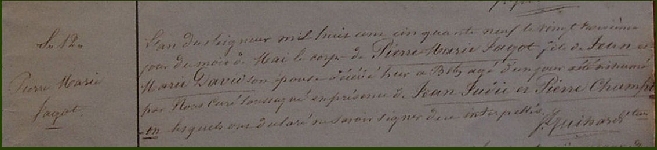 Pierre Marie
Jagot
L'an du Seigneur mil huit cent cinquante neuf le vingt troisième
jour du mois de Mai le corps de Pierre Marie Jagot, fils de Jean et
Marie David son épouse décédé hier à agé d'un jour a été inhumé
par Nous Curé soussigné en présence de Jean Judic et Pierre
en lesquels ont déclaré ne savoir signer de ce interpellés.
J. Guiharc